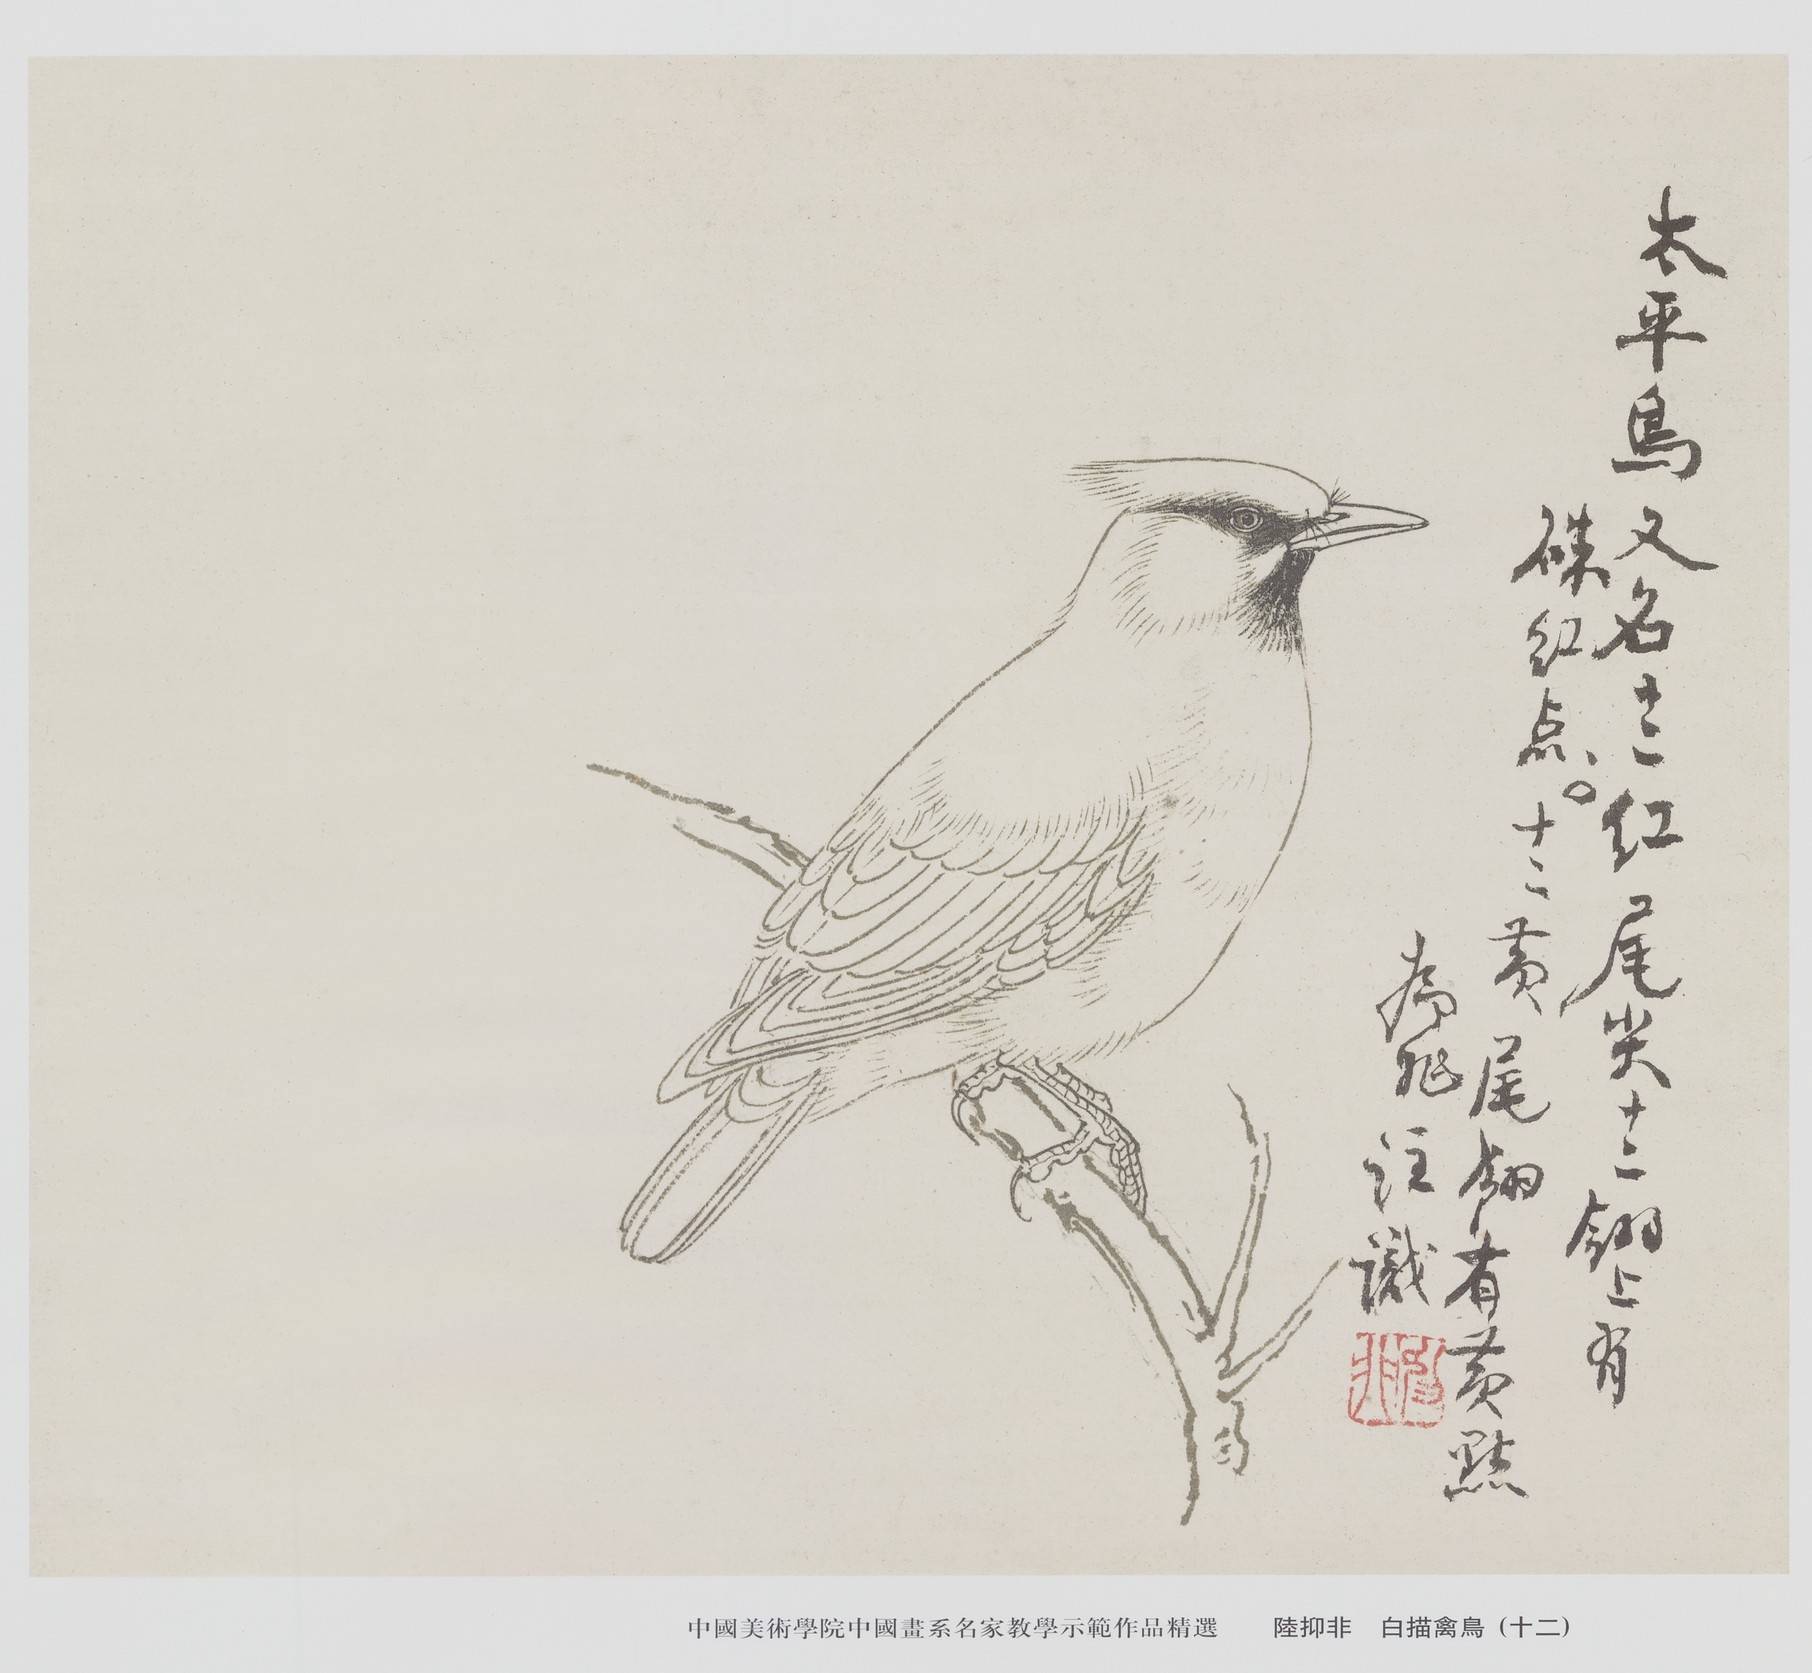 太平鳥又名十二红尾尖十二翎上有
硃红点。十二黄尾翎有黄點
抑非註識
中國美術學院中國畫系名家教學示範作品精選 陸抑非 白描禽鳥（十二）